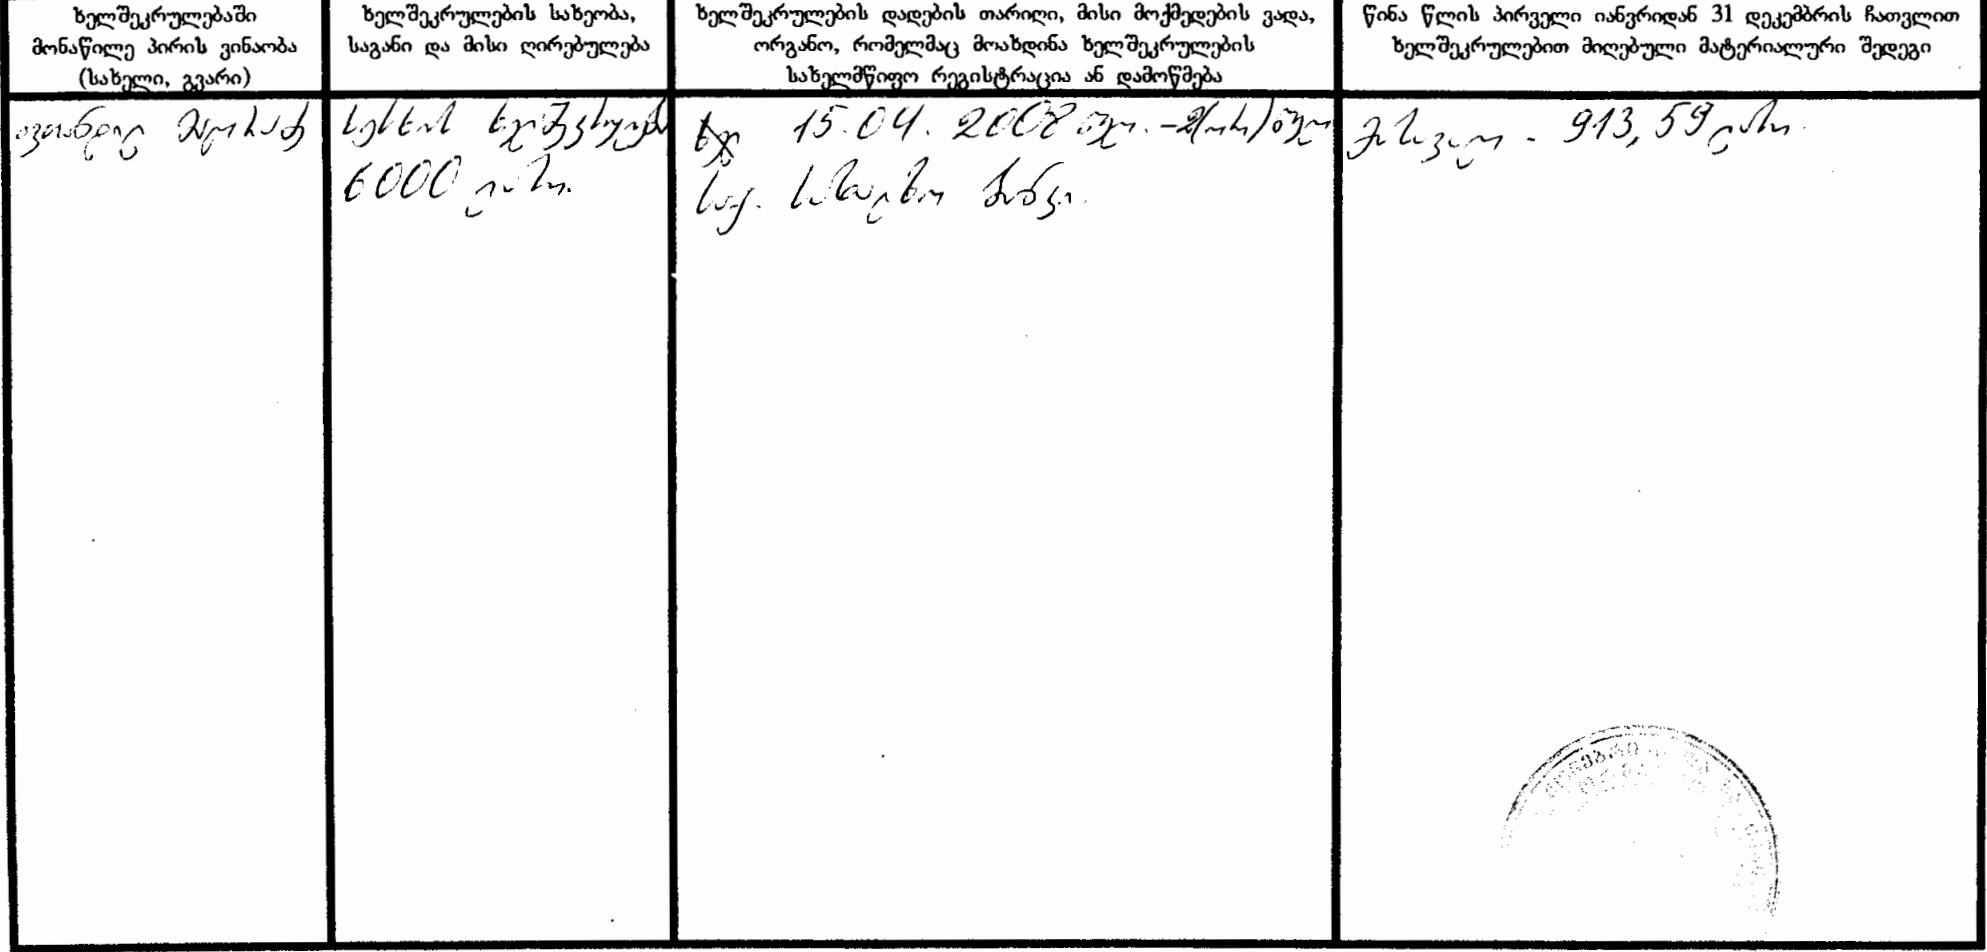 ხელშეკრულებაში
მონაწილე პირის ვინაობა
(სახელი, გვარი)
ხელშეკრულების სახეობა,
საგანი და მისი ღირებულება
ხელშეკრულების დადების თარიღი, მისი მოქმედების ვადა,
ორგანო, რომელმაც მოახდინა ხელშეკრულების
სახელმწიფო რეგისტრაცია ან დამოწმება
წინა წლის პირველი იანვრიდან 31 დეკემბრის ჩათვლით
ხელშეკრულებით მიღებული მატერიალური შედეგი
ავთანდილ
სესხის ხელშეკრულება
6000 ლარი.
15.04.2008 წელი. -2(ორი) წელი
საქ. სახალხო ბანკი.
გასავალი - 913,59 ლარი.